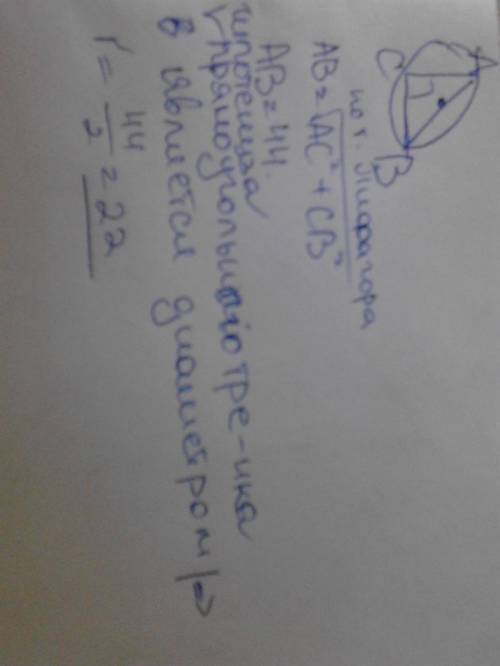 A
C
B
по т. Пифагора
AB = √AC² + CB²
AB = 44.
гипотенуза
прямоугольного тре-ика
в является диаметром | =>
r = 44/2 = 22